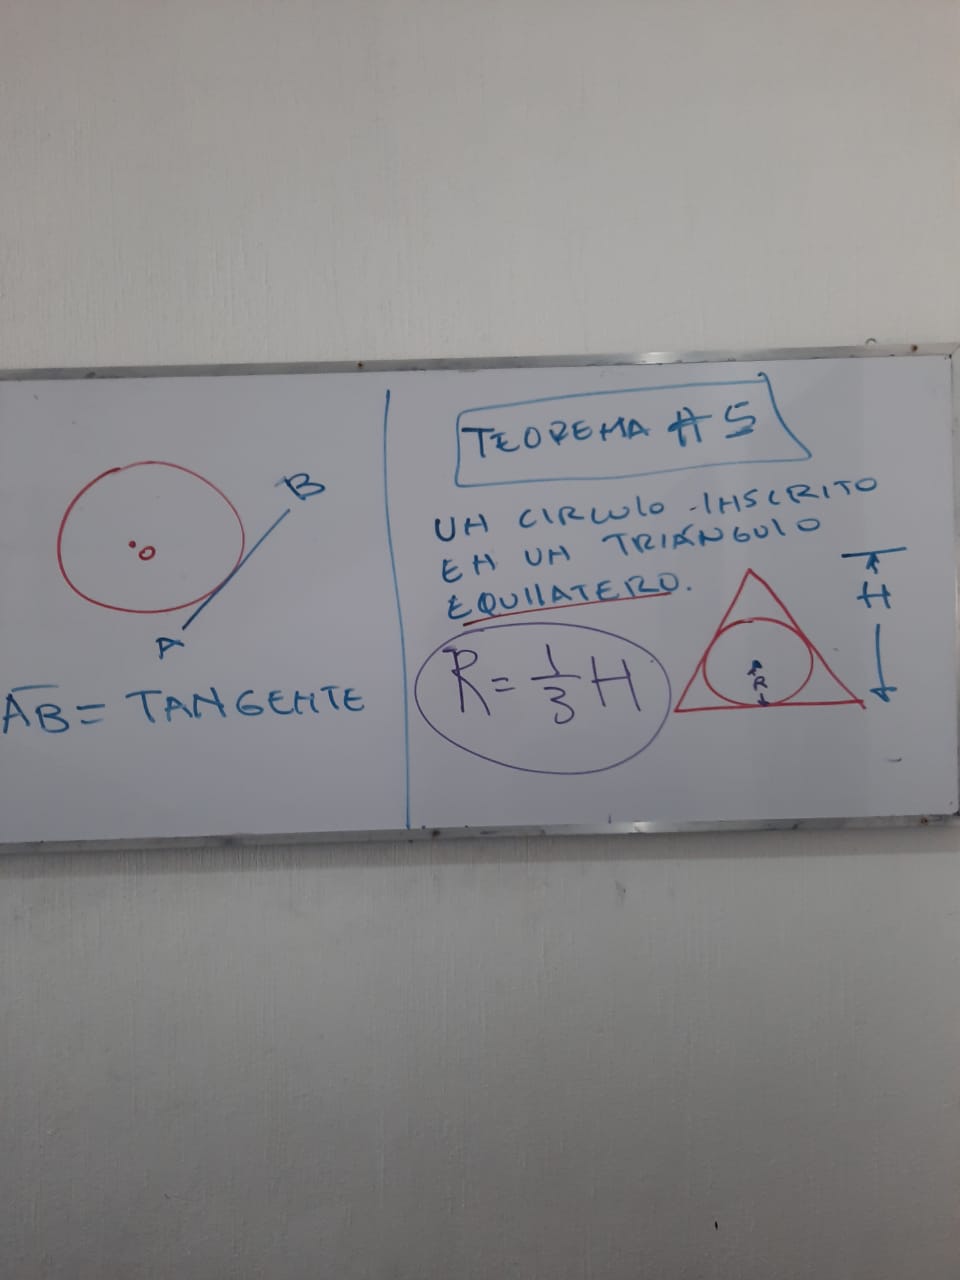 O
B
A
AB = TANGENTE
TEOREMA # 5
UN CIRCULO INSCRITO
EN UN TRIÁNGULO
EQUILATERO.
R = 1/3 H
R
H